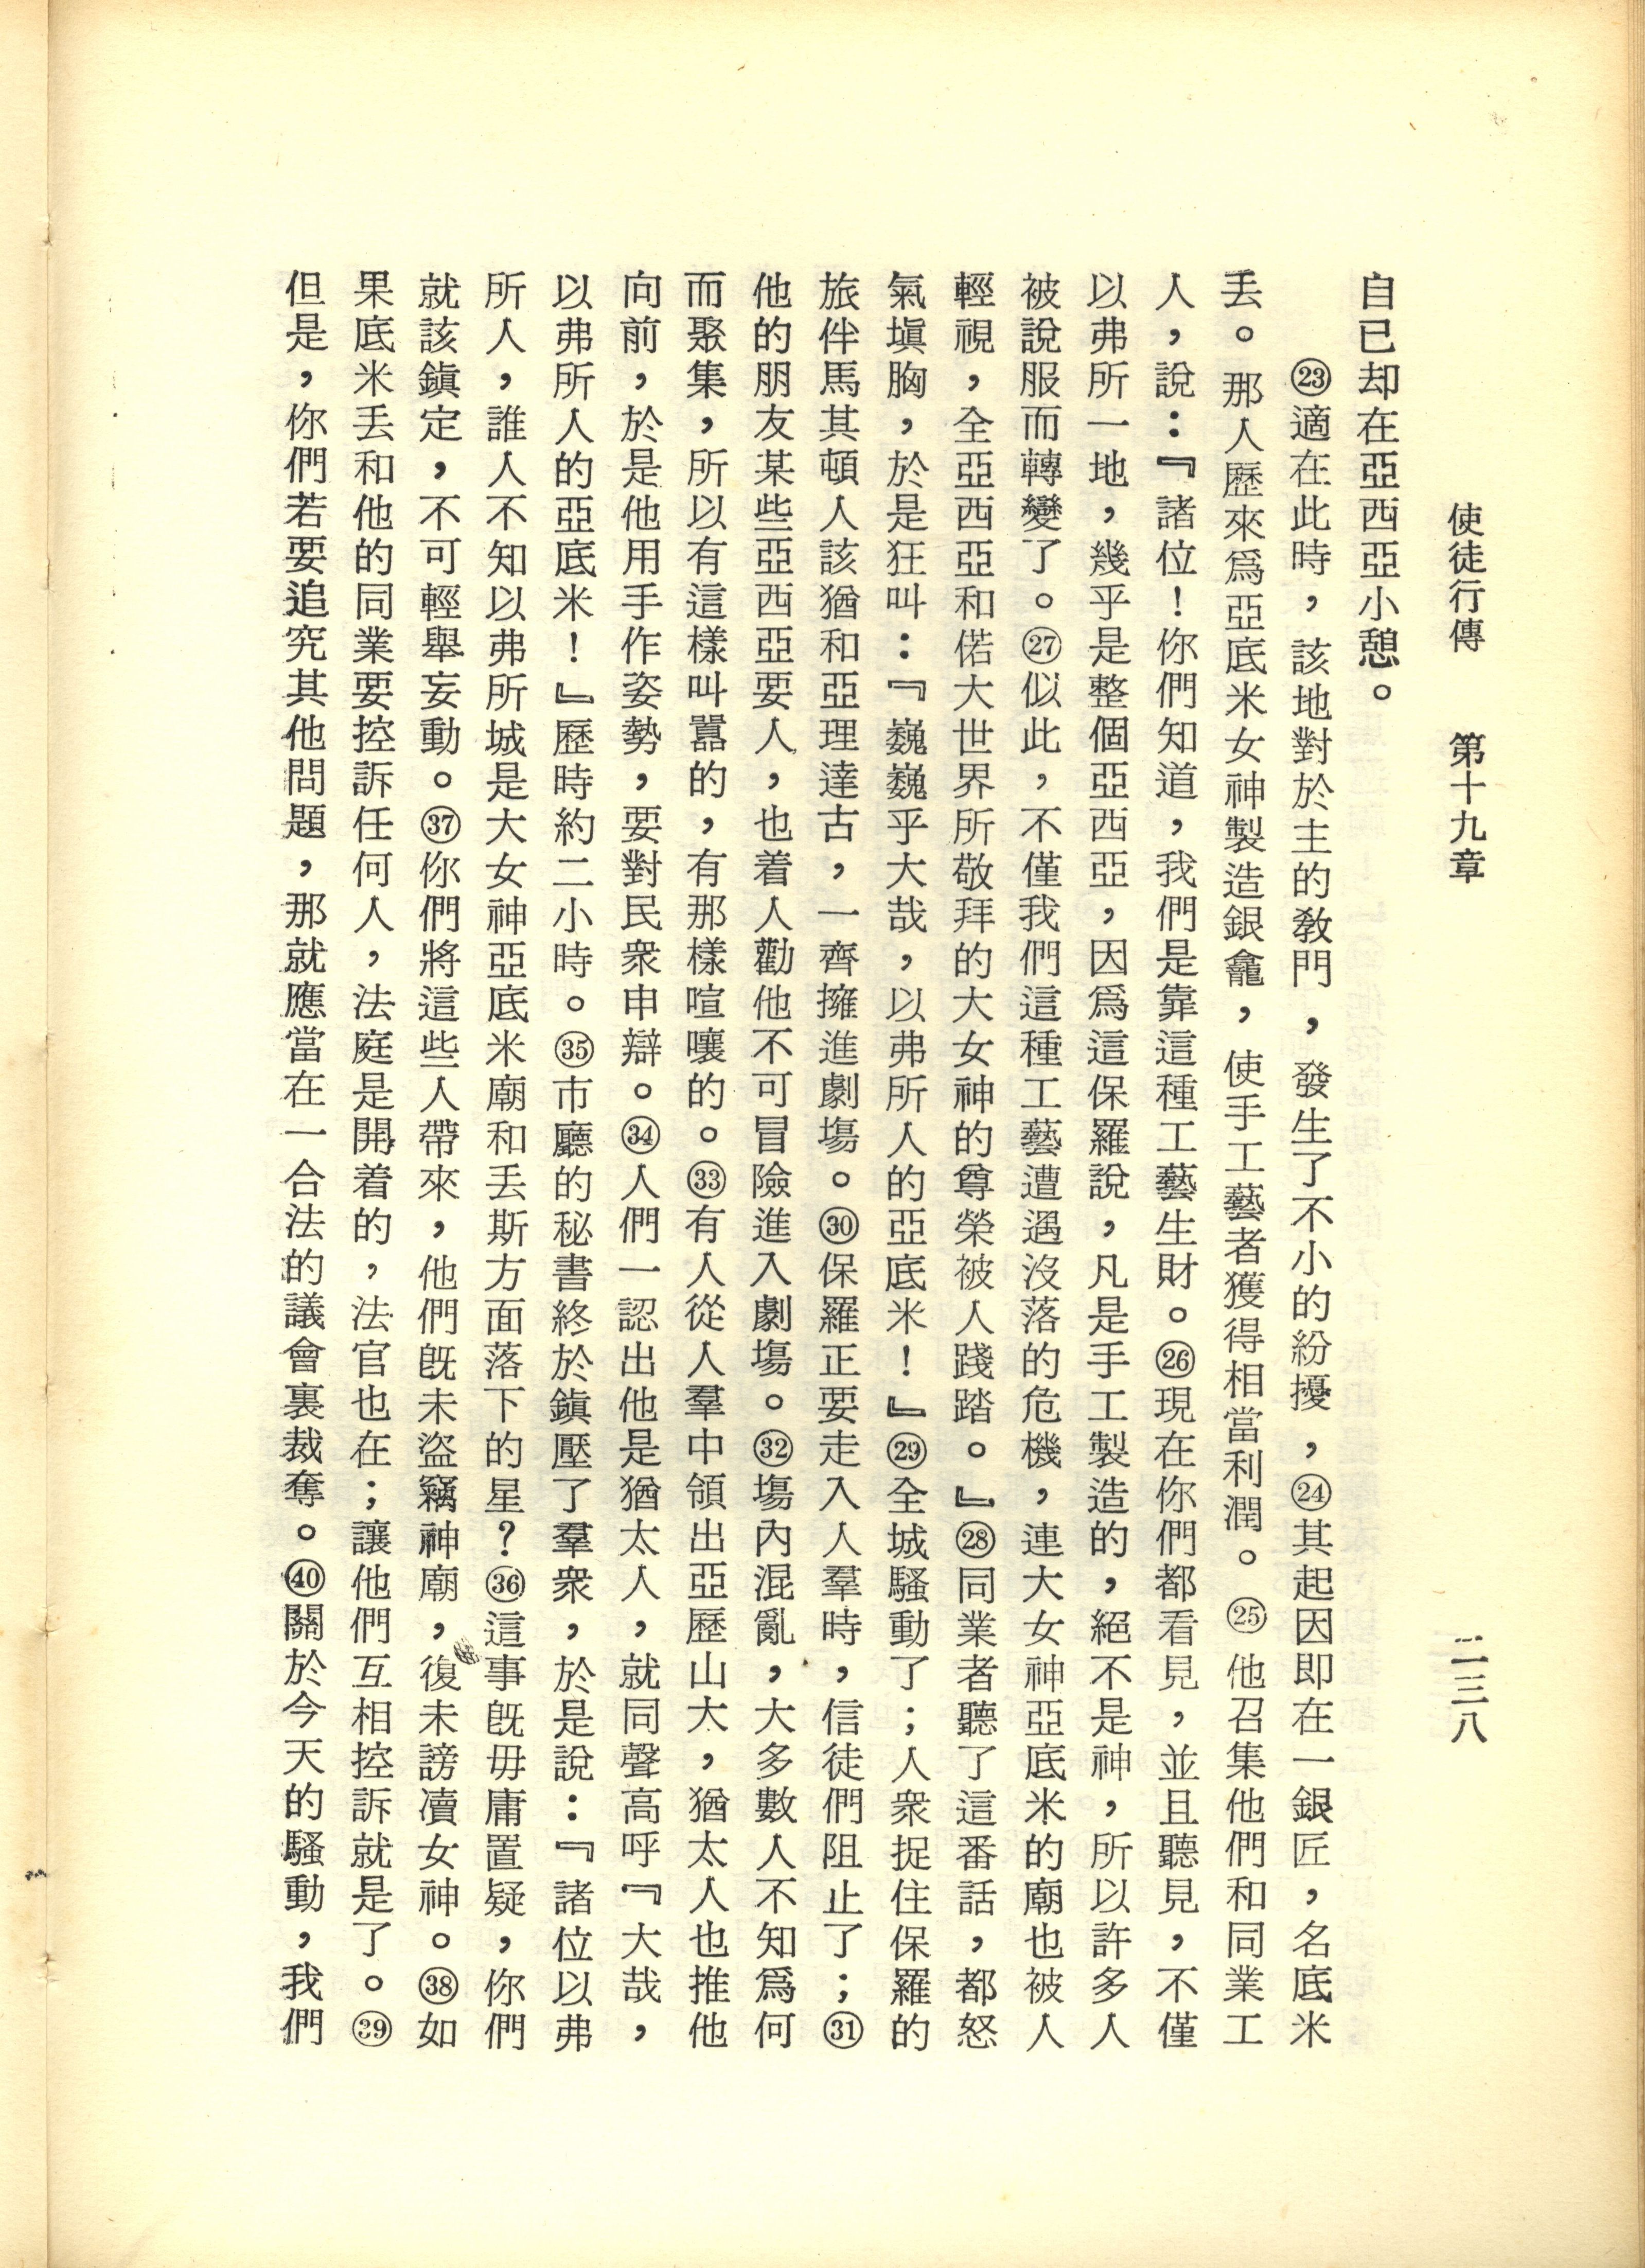 使徒行傳　第十九章　二三八
自已却在亞西亞小憩。
㉓適在此時，該地對於主的教門，發生了不小的紛擾，㉔其起因即在一銀匠，名底米
丢。那人歷來爲亞底米女神製造銀龕，使手工藝者獲得相當利潤。㉕他召集他們和同業工
人，說：『諸位！你們知道，我們是靠這種工藝生財。㉖現在你們都看見，並且聽見，不僅
以弗所一地，幾乎是整個亞西亞，因爲這保羅說，凡是手工製造的，絕不是神，所以許多人
被說服而轉變了。㉗似此，不僅我們這種工藝遭遇沒落的危機，連大女神亞底米的廟也被人
輕視，全亞西亞和偌大世界所敬拜的大女神的尊榮被人踐踏。』㉘同業者聽了這番話，都怒
氣塡胸，於是狂叫：『巍巍乎大哉，以弗所人的亞底米！』㉙全城騷動了；人衆捉住保羅的
旅伴馬其頓人該猶和亞理達古，一齊擁進劇塲。㉚保羅正要走入人羣時，信徒們阻止了；㉛
他的朋友某些亞西亞要人，也着人勸他不可冒險進入劇塲。㉜塲內混亂，大多數人不知爲何
而聚集，所以有這樣叫囂的，有那樣喧嚷的。㉝有人從人羣中領出亞歷山大，猶太人也推他
向前，於是他用手作姿勢，要對民衆申辯。㉞人們一認出他是猶太人，就同聲高呼『大哉，
以弗所人的亞底米！』歷時約二小時。㉟市廳的秘書終於鎭壓了羣衆，於是說：『諸位以弗
所人，誰人不知以弗所城是大女神亞底米廟和丢斯方面落下的星？㊱這事旣毋庸置疑，你們
就該鎭定，不可輕舉妄動。㊲你們將這些人帶來，他們旣未盜竊神廟，復未謗瀆女神。㊳如
果底米丢和他的同業要控訴任何人，法庭是開着的，法官也在；讓他們互相控訴就是了。㊴
但是，你們若要追究其他問題，那就應當在一合法的議會裏裁奪。㊵關於今天的騷動，我們